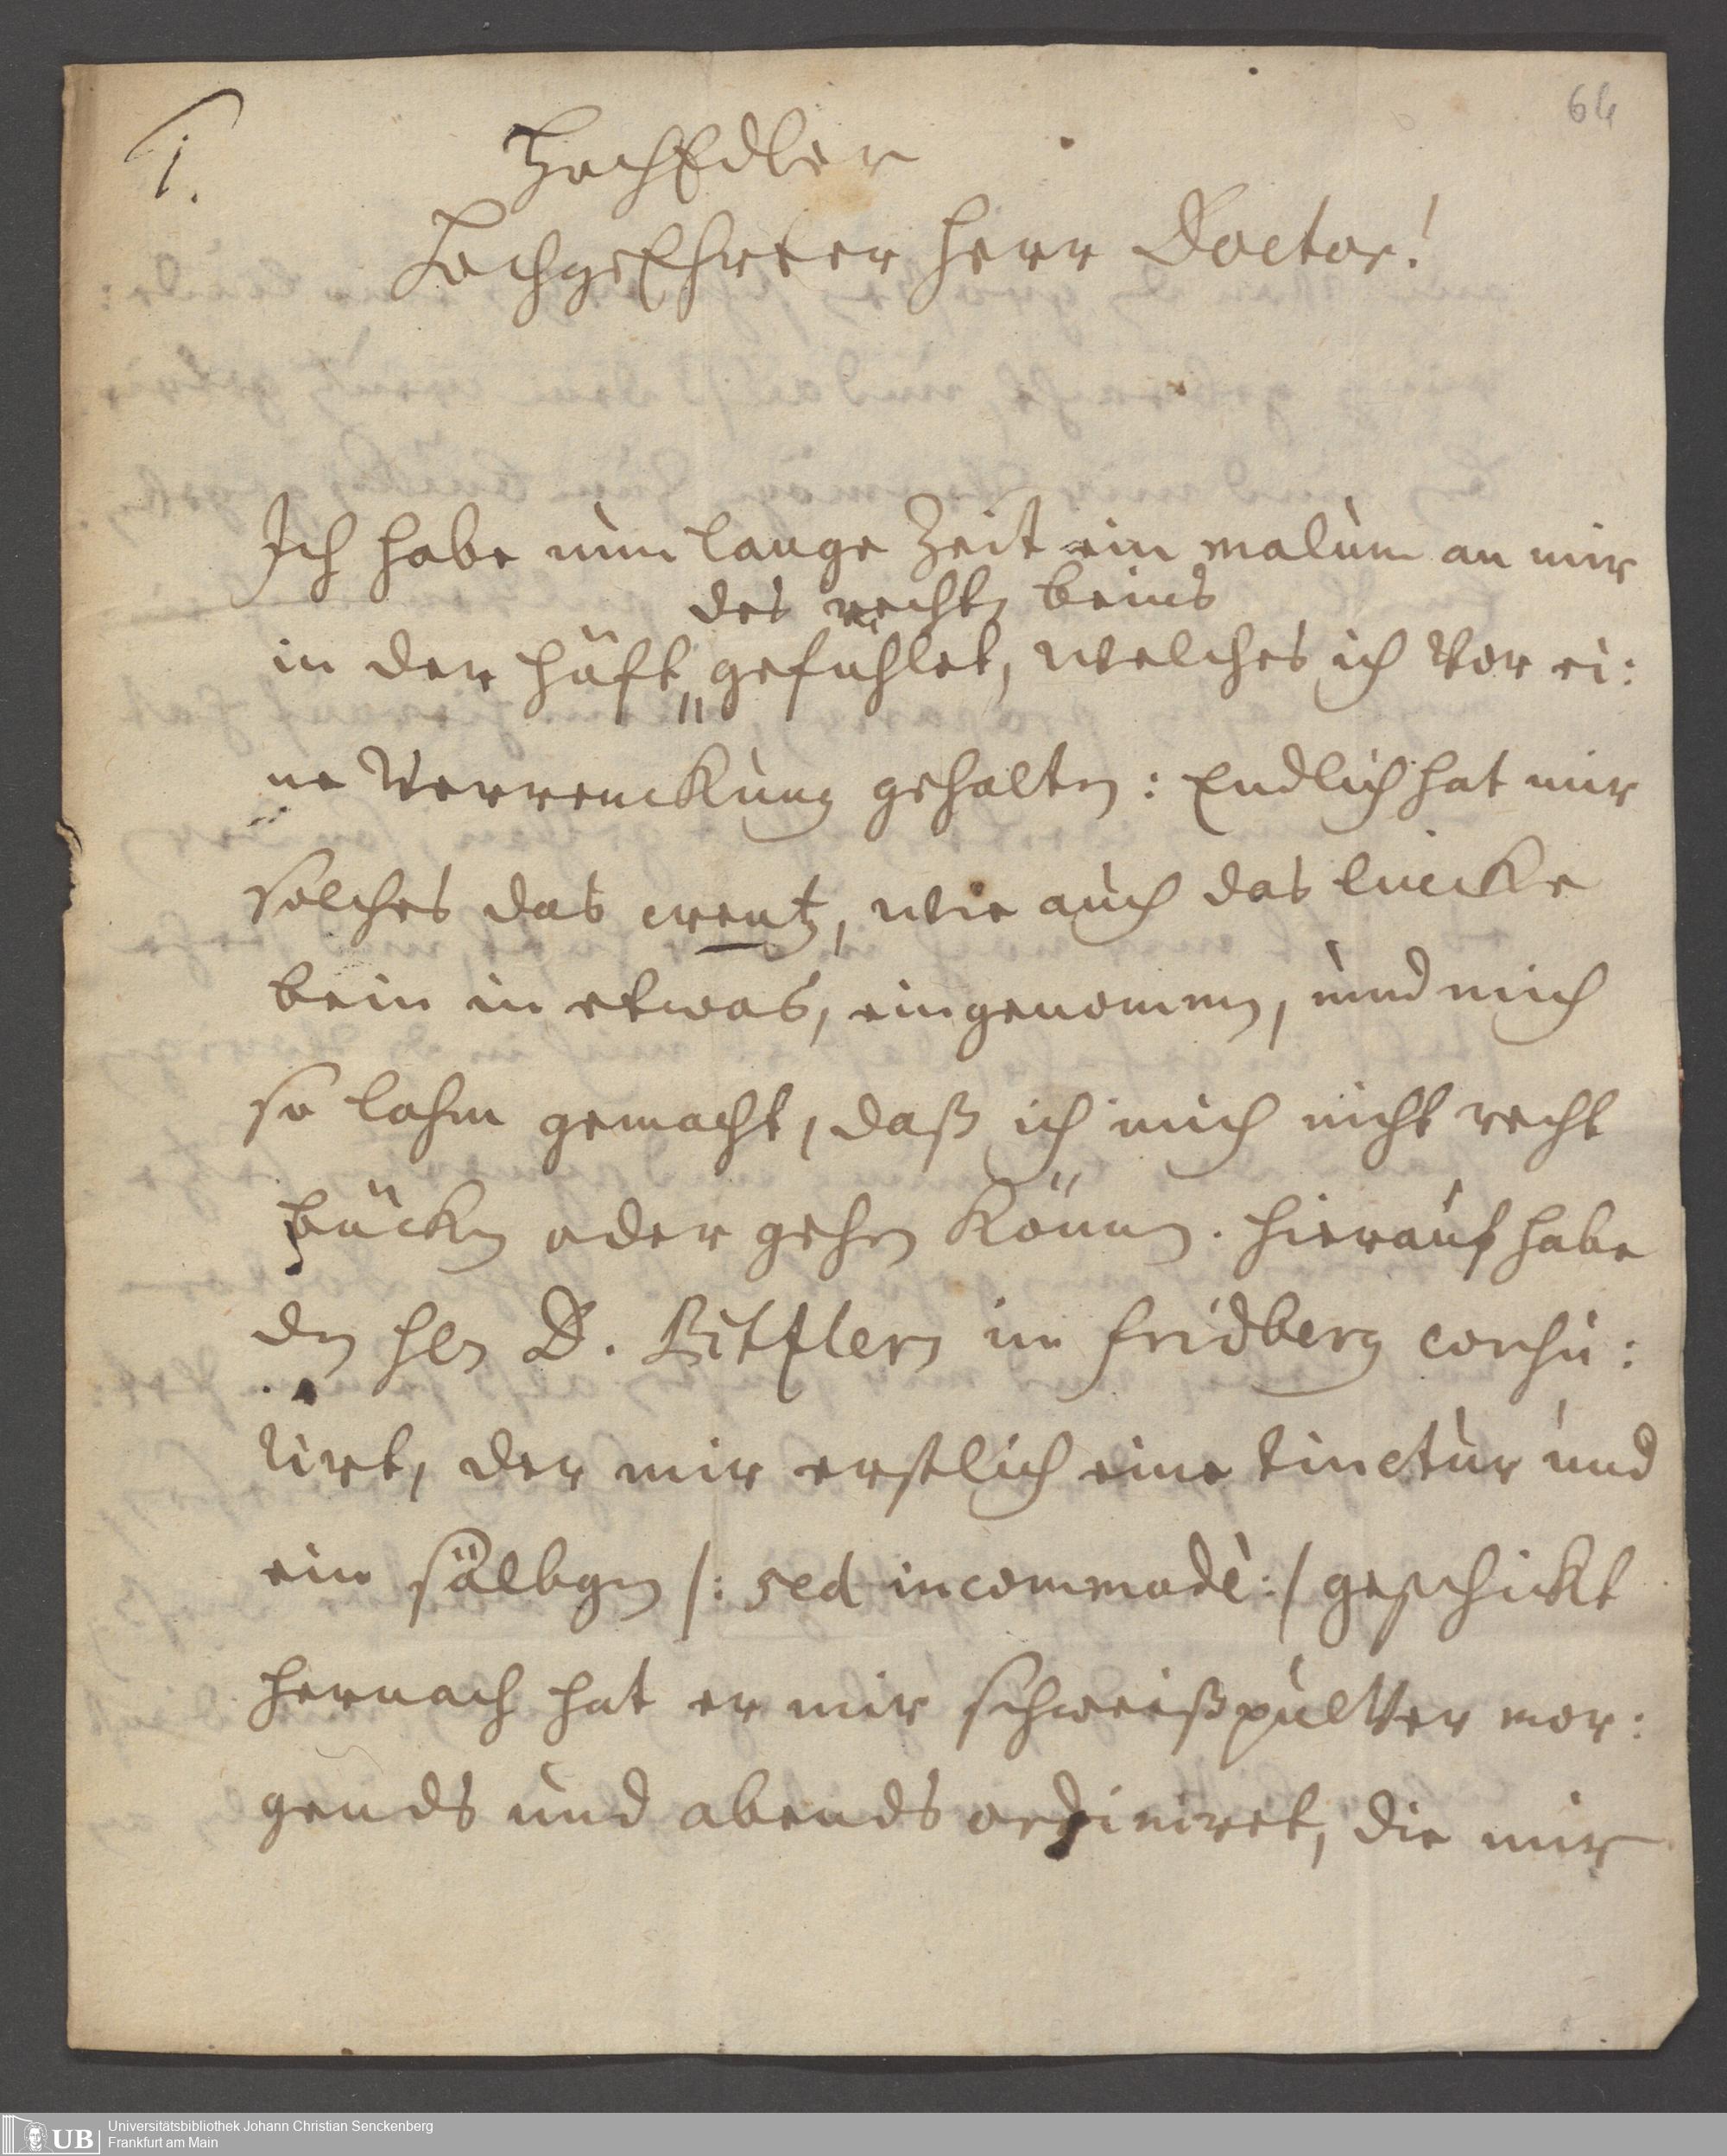 64
1.
HochEdler
HochgeEhrter Herr Doctor!
Ich habe nun lange Zeit ein malum an mir
des rechten beins
in der Hüft„ gefühlet, welches ich Vor ei:
ne Verrenckung gehalten: Endlich hat mir
solches das creutz, wie auch das lincke
bein in etwas, eingenommen, und mich
so lahm gemacht, daß ich mich nicht recht
bücken oder gehen können. Hierauf habe
den Hln D. in fridberg consu:
lirt, der mir erstlich eine tinctur und
ein sälbgen /: sed incommodè :/ geschickt
hernach hat er mir schweißpulVer mor:
gends und abends ordiniret, die mir
UB
Universitätsbibliothek Johann Christian Senckenberg
Frankfurt am Main